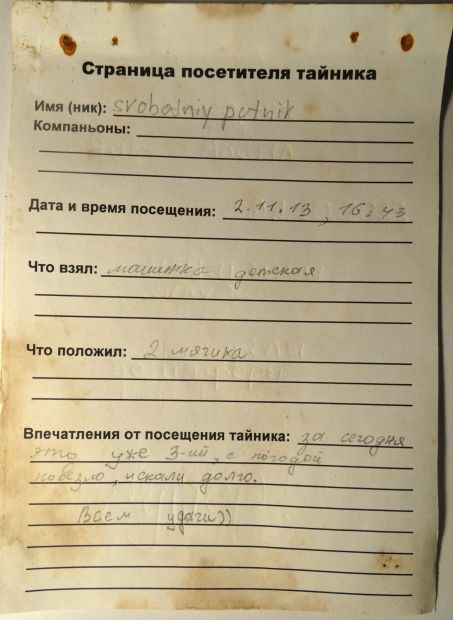 Страница посетителя тайника
Имя (ник): svobodniy potnik
Компаньоны:
Дата и время посещения: 2.11.13, 16:43
Что взял: машинка детская
Что положил: 2 мячика
Впечатления от посещения тайника: за сегодня
это уже 3-ий, с погодой
повезло, искали долго.
Всем удачи))